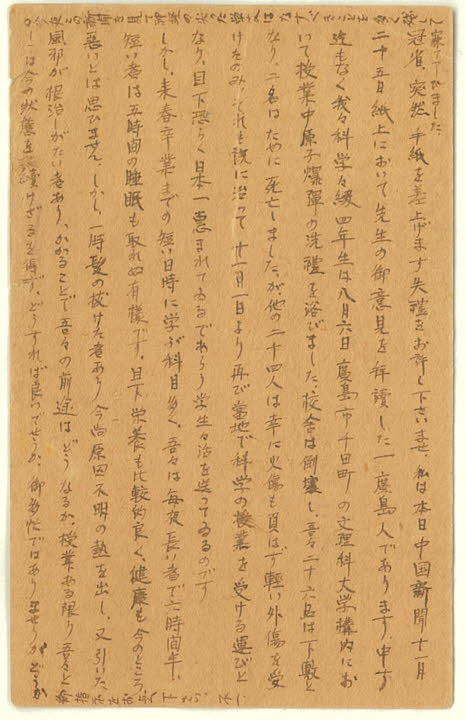 冠省、突然手紙を差上げます失禮をお許し下さいませ。私は本日中国新聞十一月
二十五日紙上において先生の御意見を拝讀した一廣島人であります。申す
迄もなく我々科学々級四年生は八月六日廣島市千田町の文理科大学構内にお
いて授業中原子爆彈の洗禮を浴びました。校舎は倒壊し、吾々二十六名は下敷と
なり、二名はために死亡しました。が他の二十四人は幸に火傷も負はず軽い外傷を受
けたのみ。それも既に治つて十一月一日より再び當地で科学の授業を受ける運びと
なり、目下恐らく日本一恵まれてゐるであらう学生々活を送つてゐるのです
しかし、来春卒業までの短い日時に学ぶ科目多く、吾々は毎夜長い者で六時間半、
短い者は五時間の睡眠も取れぬ有様です。目下栄養も比較的良く、健康も今のところ
惡いとは思ひません。しかし一時髪の抜けた者あり今尚原因不明の熱を出し、又引いた
風邪が根治しがたい者あり、かかることで吾々の前途はどうなるか。授業ある限り吾々と
しては今の状態を續けざるを得ず、どうすれば良いでせうか。御多忙ではありませうがどうか
御指示をお与へ下さい。不一
新聞を見て
てしまひました